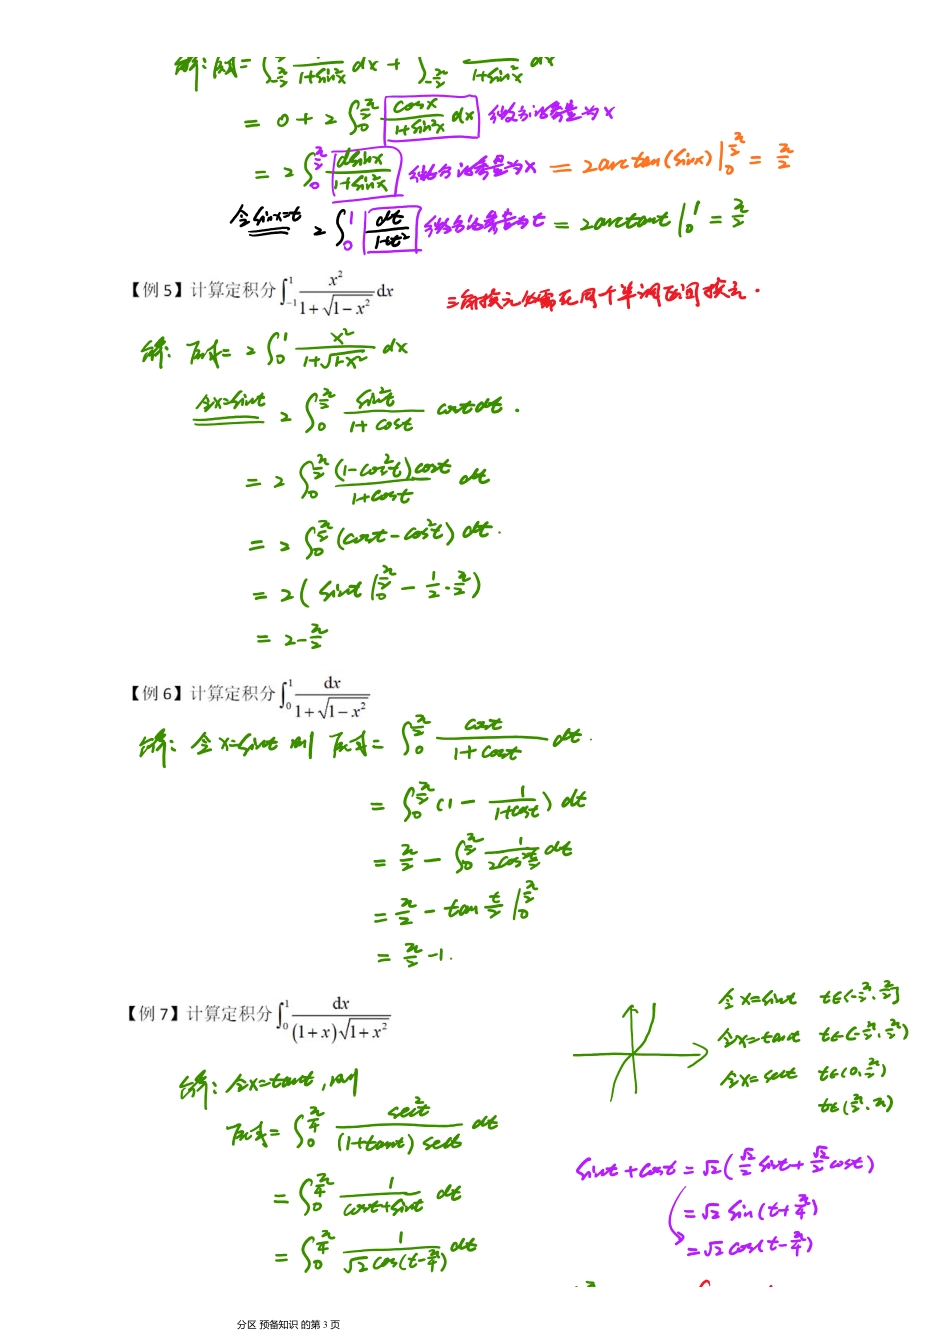 解:原式 = ∫_{-π/2} /(1+sin²x) dx + ∫_{-π/2} /(1+sin²x) dx
= 0 + 2∫_0^{π/2} cosx/(1+sin²x) dx 微分的变量为x
= 2∫_0^{π/2} dsinx/(1+sin²x) 微分的变量为x = 2arctan(sinx)|_0^{π/2} = π/2
令sinx=t 2∫_0^1 dt/(1+t²) 微分的变量为t = 2arctant|_0^1 = π/2
【例 5】计算定积分 ∫_{-1}^1 x²/(1+√(1-x²)) dx
三角换元必需在同个单调区间换元.
解: 原式= 2∫_0^1 x²/(1+√(1-x²)) dx
令x=sint 2∫_0^{π/2} sin²t/(1+cost) costdt.
= 2∫_0^{π/2} (1-cos²t)cost/(1+cost) dt
= 2∫_0^{π/2} (cost-cos²t) dt.
= 2( sint|_0^{π/2} - 1/2·π/2 )
= 2-π/2
【例 6】计算定积分 ∫_0^1 dx/(1+√(1-x²))
解: 令x=sint 则 原式= ∫_0^{π/2} cost/(1+cost) dt.
= ∫_0^{π/2} (1 - 1/(1+cost)) dt
= π/2 - ∫_0^{π/2} 1/(2cos²(t/2)) dt
= π/2 - tan t/2 |_0^{π/2}
= π/2 -1.
【例 7】计算定积分 ∫_0^1 dx/((1+x)√(1+x²))
令x=sint t∈[-π/2,π/2]
令x=tant t∈(-π/2,π/2)
令x=sect t∈(0,π/2)
t∈(π/2,π)
解: 令x=tant,则
原式= ∫_0^{π/4} sec²t/((1+tant)sect) dt
= ∫_0^{π/4} 1/(cost+sint) dt
= ∫_0^{π/4} 1/(√2cos(t-π/4)) dt
sint+cost = √2(√2/2 sint+√2/2 cost)
= √2 sin(t+π/4)
= √2 cos(t-π/4)
分区 预备知识 的第 3 页